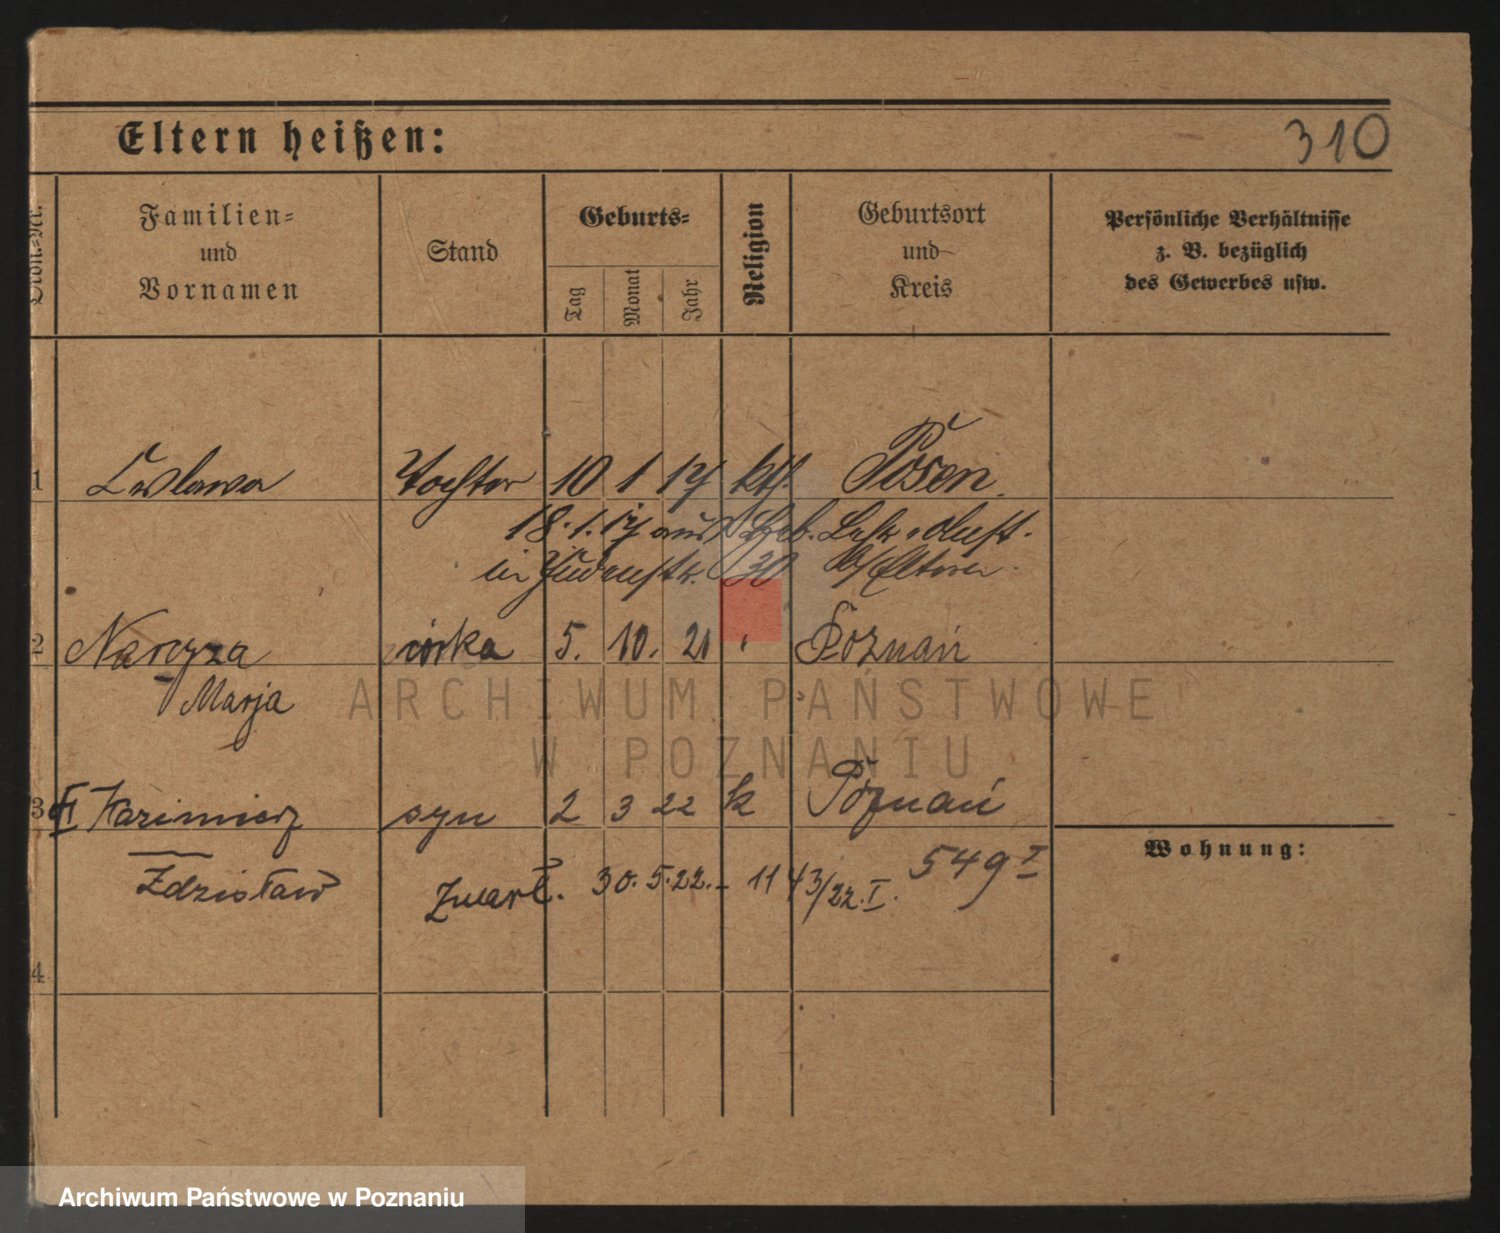 Eltern heißen:
310
Ordn.-Nr.
Familien-
und
Vornamen
Stand
Geburts-
Tag
Monat
Jahr
Religion
Geburtsort
und
Kreis
Persönliche Verhältnisse
z. B. bezüglich
des Gewerbes usw.
1 Tochter 10 1 17 kth. Posen
18.1.17
in 30 b/ Eltern.
2 Narcyza córka 5. 10. 21 Poznań
Marja
3 Kazimierz syn 2 3 22 k Poznań
Wohnung:
Zdzisław
zmarł. 30.5.22. - 1143/22.I. 549 I
4
ARCHIWUM PAŃSTWOWE
W POZNANIU
Archiwum Państwowe w Poznaniu